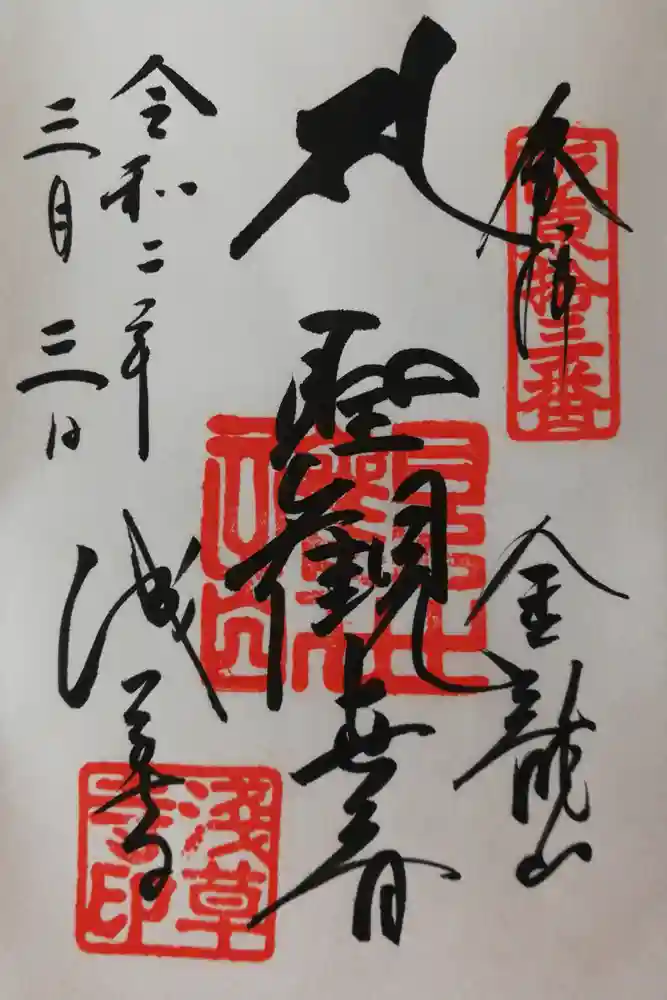 奉拝
坂東拾三番
金龍山
聖觀世音
令和二年
三月三日
浅草寺
淺草
寺印